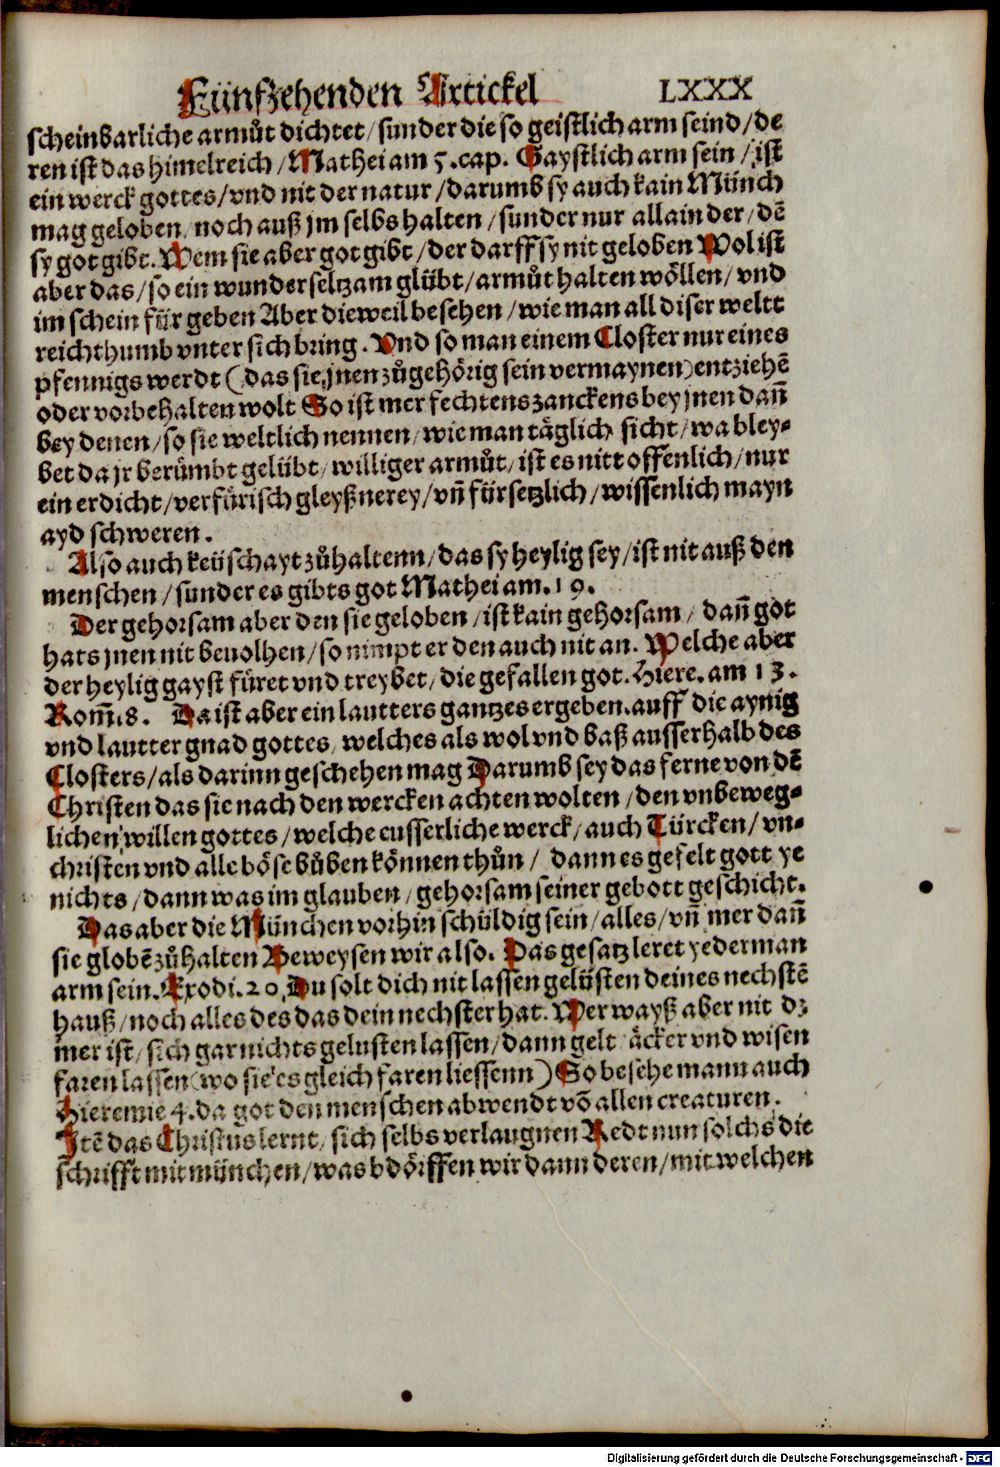 Fünfzehenden Artickel LXXX
scheinbarliche armůt dichtet/ sunder die so geistlich arm seind/ de
ren ist das himelreich/ Mathei am 5. cap. Gaystlich arm sein/ ist
ein werck gottes/ vnd nit der natur/ darumb sy auch kain Münch
mag geloben/ noch auß jm selbs halten/ sunder nur allain der/ dē
sy got gibt. Wem sie aber got gibt/ der darff sy nit geloben Wol ist
aber das/ so ein wunder seltzam glübt/ armůt halten wöllen/ vnd
im schein für geben Aber dieweil besehen/ wie man all diser weltt
reichthumb vnter sich bring. Vnd so man einem Closter nur eines
pfennigs werdt (das sie jnen zůgehörig sein vermaynen) entziehē
oder vorbehalten wolt So ist mer fechtens zanckens bey jnen dañ
bey denen/ so sie weltlich nennen/ wie man täglich sicht/ wa bley-
bet da jr berümbt gelübt/ williger armůt/ ist es nitt offenlich/ nur
ein erdicht/ verfürisch gleyßnerey/ vñ fürsetzlich/ wissenlich mayn
ayd schweren.
Also auch keüschayt zůhaltenn/ das sy heylig sey/ ist nit auß den
menschen/ sunder es gibts got Mathei am. 19.
Der gehorsam aber den sie geloben/ ist kain gehorsam/ dañ got
hats jnen nit beuolhen/ so nimpt er den auch nit an. Welche aber
der heylig gayst füret vnd treybet/ die gefallen got. Hiere. am 13.
Rom̄. 8. Da ist aber ein lautters gantzes ergeben. auff die aynig
vnd lautter gnad gottes/ welches als wol vnd baß ausserhalb des
Closters/ als darinn geschehen mag Darumb sey das ferne von dē
Christen das sie nach den wercken achten wolten/ den vnbeweg-
lichen willen gottes/ welche eusserliche werck/ auch Türcken/ vn-
christen vnd alle böse bůben können thůn/ dann es gefelt gott ye
nichts/ dann was im glauben/ gehorsam seiner gebott geschicht.
Das aber die München vorhin schüldig sein/ alles/ vñ mer dañ
sie globē zůhalten Beweysen wir also. Das gesatz leret yederman
arm sein. Exodi. 20. Du solt dich nit lassen gelüsten deines nechstē
hauß/ noch alles des das dein nechster hat. Wer wayß aber nit dz
mer ist/ sich gar nichts gelusten lassen/ dann gelt äcker vnd wisen
faren lassen (wo sie es gleich faren liessenn) So besehe mann auch
Hieremie 4. da got den menschen abwendt vō allen creaturen.
Itē das Christus lernt/ sich selbs verlaugnen Redt nun solchs die
schrifft mit münchen/ was bdörffen wir dann deren/ mit welchen
Digitalisierung gefördert durch die Deutsche Forschungsgemeinschaft - DFG